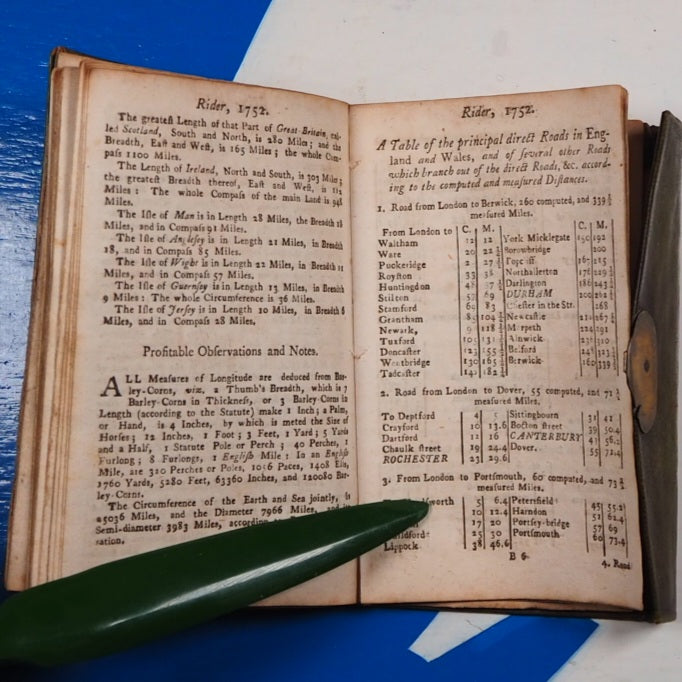 Rider, 1752.
The greatest Length of that Part of Great-Britain, cal-
led Scotland, South and North, is 280 Miles; and the
Breadth, East and West, is 165 Miles; the whole Com-
pass 1100 Miles.
The Length of Ireland, North and South, is 303 Miles;
the greatest Breadth thereof, East and West, is 112
Miles: The whole Compass of the main Land is 946
Miles.
The Isle of Man is in Length 28 Miles, the Breadth
Miles, and in Compass 91 Miles.
The Isle of Anglesey is in Length 21 Miles, in Breadth
18, and in Compass 85 Miles.
The Isle of Wight is in Length 22 Miles, in Breadth 11
Miles, and in Compass 57 Miles.
The Isle of Guernsey is in Length 13 Miles, in Breadth
9 Miles: The whole Circumference is 36 Miles.
The Isle of Jersey is in Length 10 Miles, in Breadth 6
Miles, and in Compass 28 Miles.
Profitable Observations and Notes.
ALL Measures of Longitude are deduced from Bar-
ley-Corns, viz. 2 Thumb's Breadth, which is 7
Barley-Corns in Thickness, or 3 Barley-Corns in
Length (according to the Statute) make 1 Inch; a Palm,
or Hand, is 4 Inches, by which is meted the Size of
Horses; 12 Inches, 1 Foot; 3 Feet, 1 Yard; 5 Yards
and a Half, 1 Statute Pole or Perch; 40 Perches, 1
Furlong; 8 Furlongs, 1 English Mile: In an English
Mile, are 320 Perches or Poles, 1056 Paces, 1408 Ells,
1760 Yards, 5280 Feet, 63360 Inches, and 120080 Bar-
ley-Corns.
The Circumference of the Earth and Sea jointly, is
25036 Miles, and the Diameter 7966 Miles, and its
Semi-diameter 3983 Miles, according to
tation.
Rider, 1752.
A Table of the principal direct Roads in Eng-
land and Wales, and of several other Roads
which branch out of the direct Roads, &c. accord-
ing to the computed and measured Distances.
1. Road from London to Berwick, 260 computed, and 339 ½
measured Miles.
From London to C. M. C. M.
Waltham 12 12 York Micklegate 150 192
Ware 20 Borowbridge 200
Puckeridge 27 Topcliff 167 215
Royston 33 38 Northallerton 176
Huntingdon 48 57 Darlington 186 243
Stilton 57 69 DURHAM 200
Stamford 69 83 Chester in the Str. 268
Grantham 104 Newcastle
Newark, 118 Morpeth 224 291
Tuxford 131 Alnwick
Doncaster 155 Belford
Wentbridge 130 165 Berwick 260
Tadcaster 182
2. Road from London to Dover, 55 computed, and 71 ½
measured Miles.
To Deptford 4 5 Sittingbourn 31 41
Crayford 10 13.6 Boston street 39 50.4
Dartford 12 16 CANTERBURY 56.2
Chaulk street 19 24.4 Dover. 55 71.4
ROCHESTER 23 29.6
3. From London to Portsmouth, 60 computed, and 73 ½
measured Miles.
sworth 5 6.4 Petersfield 45 55.2
10 12.4 Harndon 51 62.4
17 20 Portsey-bridge 57 69
uildford 25 30 Portsmouth 60 73.4
Lippock 38 46.6
B 6 4. Road